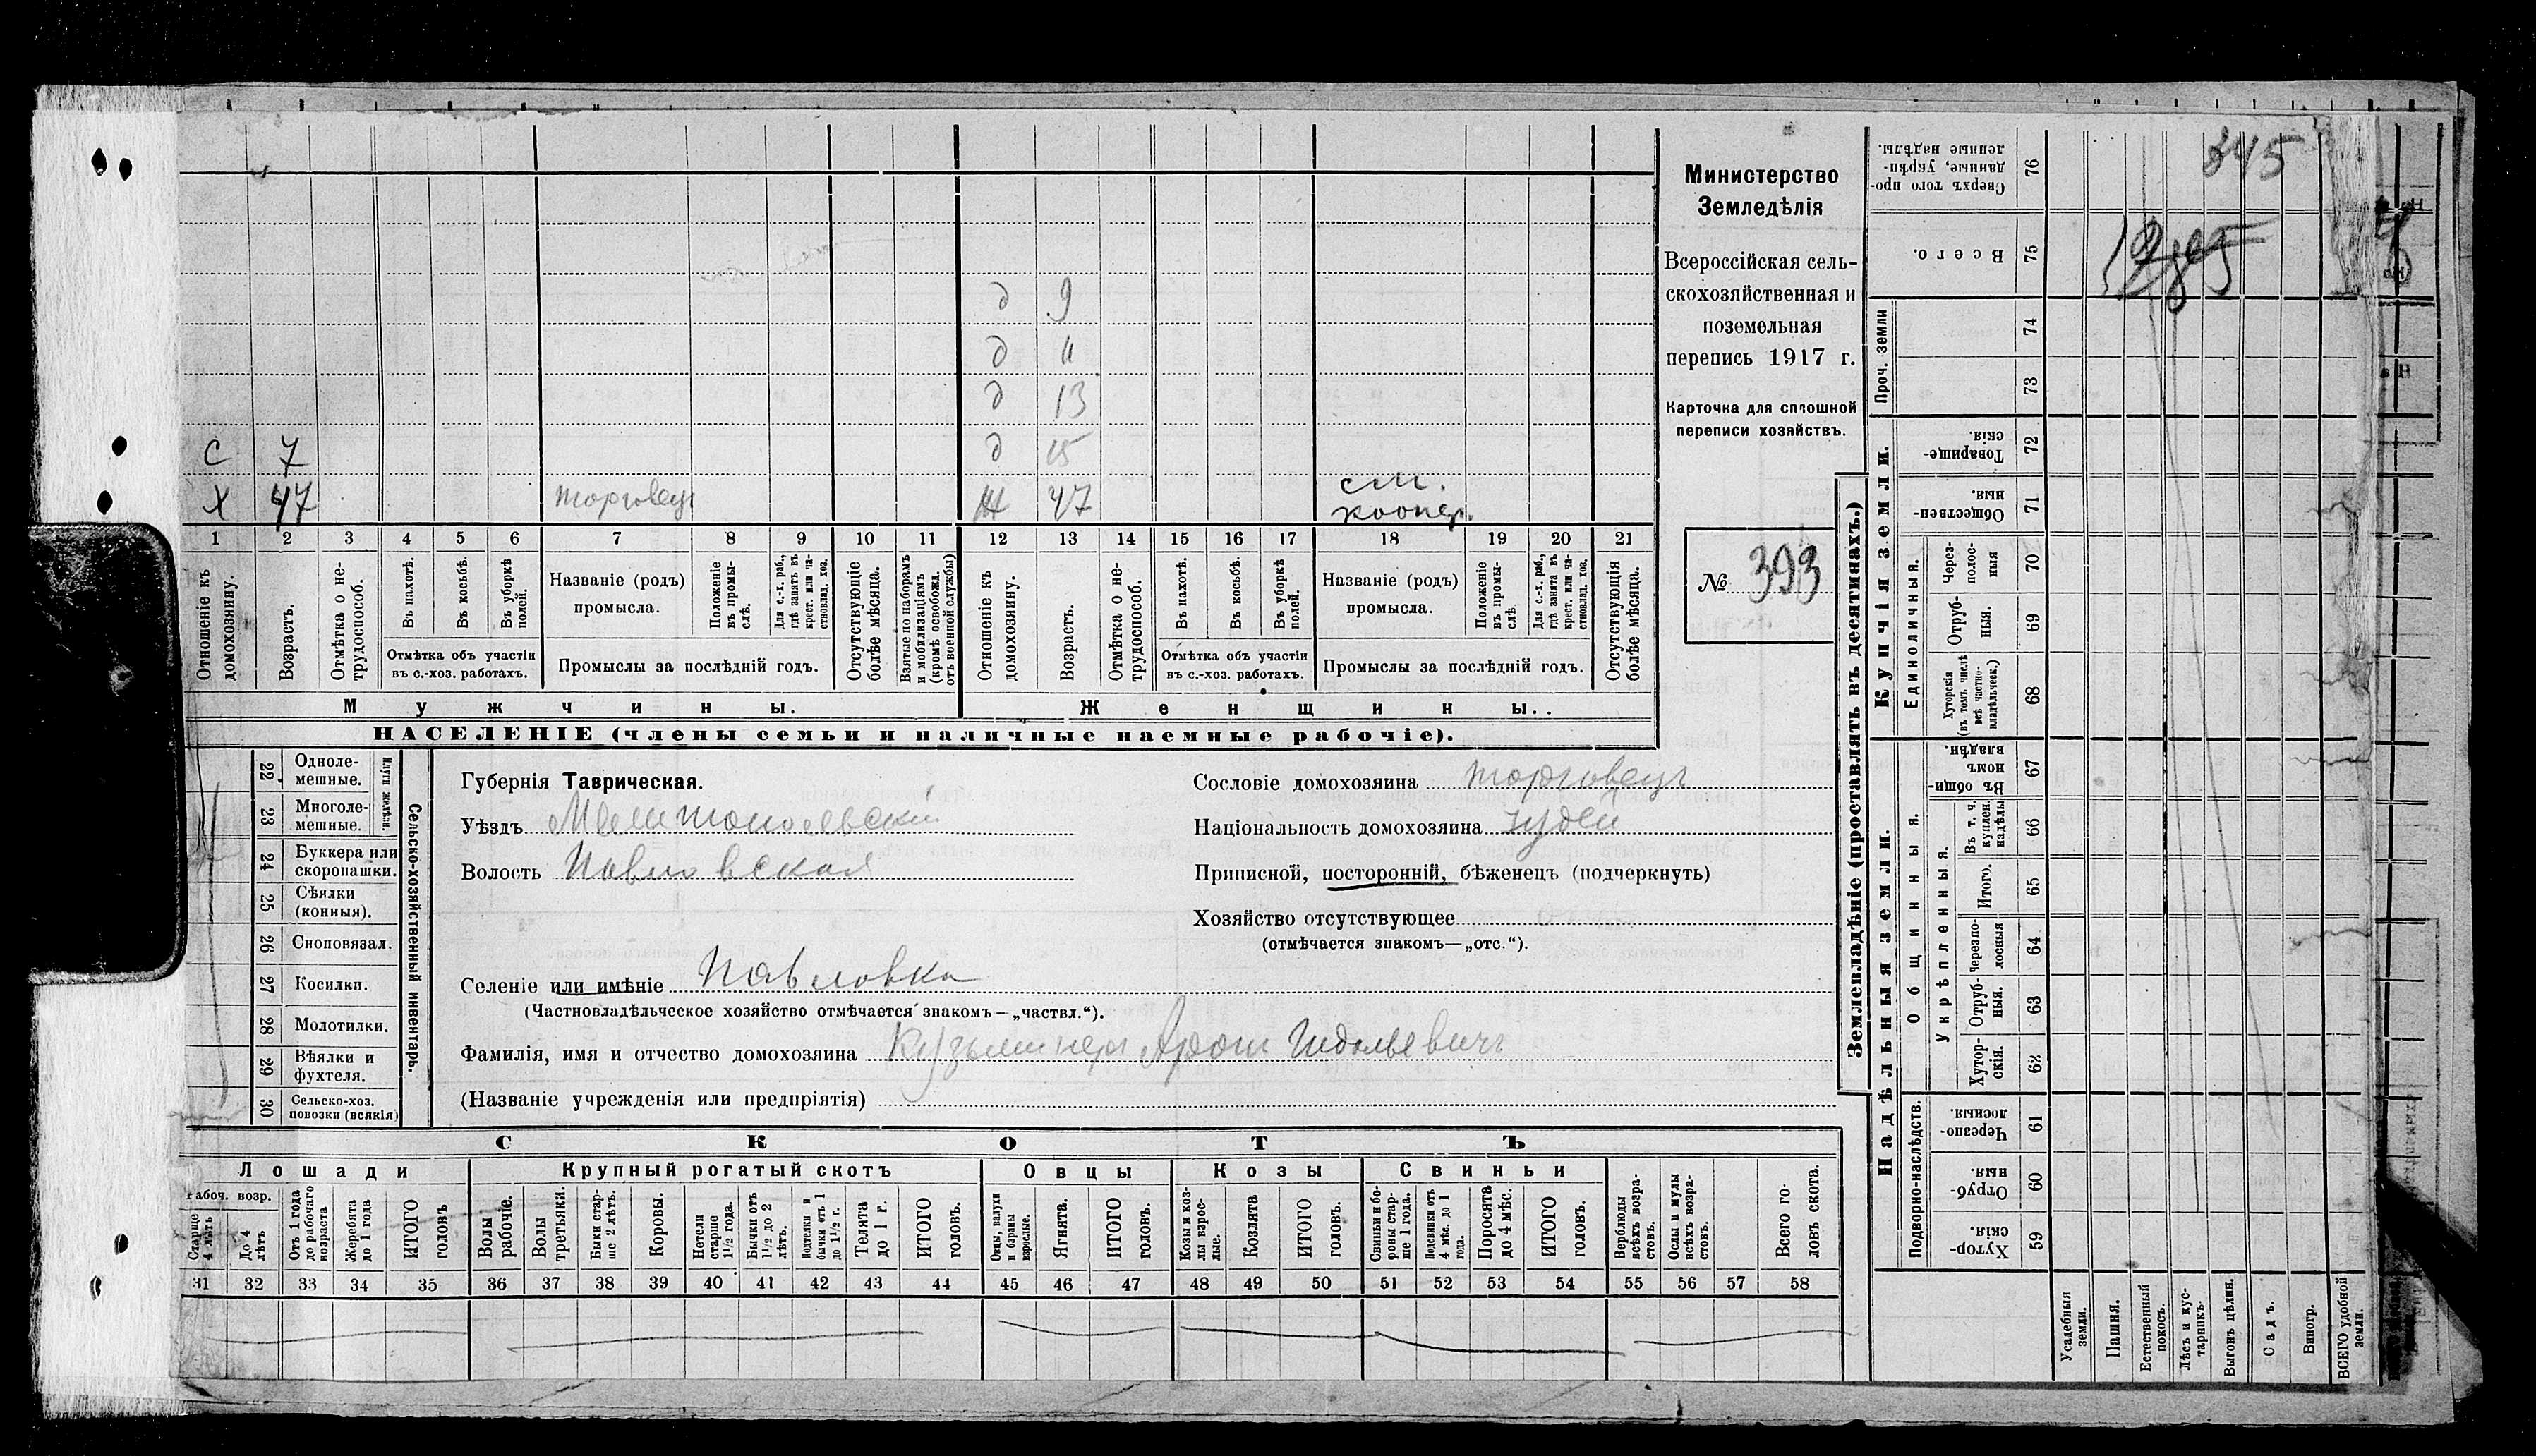 345
Министерство
Земледѣлія
Всероссійская сель-
скохозяйственная и
поземельная
перепись 1917 г.
Карточка для сплошной
переписи хозяйствъ.
№ 393
д 9
д 11
д 13
С 7 д 15
Х 47 торговецъ Ж 47 см.
коопер.
1 2 3 4 5 6 7 8 9 10 11 12 13 14 15 16 17 18 19 20 21
Отношеніе къ домохозяину.
Возрастъ.
Отмѣтка о не-трудоспособ.
Въ пахотѣ.
Въ косьбѣ.
Въ уборкѣ полей.
Отмѣтка объ участіи
въ с.-хоз. работахъ.
Названіе (родъ)
промысла.
Положеніе въ промы-слѣ.
Для с.-х. раб., гдѣ занятъ въ крест. или ча-стновлад. хоз.
Промыслы за послѣдній годъ.
Отсутствующіе болѣе мѣсяца.
Взятые по наборамъ и мобилизаціямъ (кромѣ освобожд. отъ военной службы)
Отношеніе къ домохозяину.
Возрастъ.
Отмѣтка о не-трудоспособ.
Въ пахотѣ.
Въ косьбѣ.
Въ уборкѣ полей.
Отмѣтка объ участіи
въ с.-хоз. работахъ.
Названіе (родъ)
промысла.
Положеніе въ промы-слѣ.
Для с.-х. раб., гдѣ занята въ крест. или ча-стновлад. хоз.
Промыслы за послѣдній годъ.
Отсутствующія болѣе мѣсяца.
Мужчины. Женщины.
НАСЕЛЕНІЕ (члены семьи и наличные наемные рабочіе).
22 Одноле-
мешные.
23 Многоле-
мешные.
Плуги желѣзн.
24 Буккера или
скоропашки.
25 Сѣялки
(конныя).
26 Сноповязал.
27 Косилки.
28 Молотилки.
29 Вѣялки и
фухтеля.
30 Сельско-хоз.
повозки (всякія)
Сельско-хозяйственный инвентарь.
Губернія Таврическая.
Уѣздъ Мелитопольскій
Волость Павловская
Селеніе или имѣніе Павловка
(Частновладѣльческое хозяйство отмѣчается знакомъ—„частвл.“).
Фамилія, имя и отчество домохозяина
(Названіе учрежденія или предпріятія)
Сословіе домохозяина торговецъ
Національность домохозяина іудей
Приписной, посторонній, бѣженецъ (подчеркнуть)
Хозяйство отсутствующее
(отмѣчается знакомъ—„отс.“).
СКОТЪ
Лошади Крупный рогатый скотъ Овцы Козы Свиньи
Рабоч. возр.
Старше 4 лѣтъ
До 4 лѣтъ
Отъ 1 года до рабочаго возраста
Жеребята до 1 года
ИТОГО головъ
Волы рабочіе.
Волы третьяки.
Быки стар-ше 2 лѣтъ.
Коровы.
Нетели старше 1½ года.
Бычки отъ 1½ до 2 лѣтъ.
Подтелки и бычки отъ 1 до 1½ г.
Телята до 1 г.
ИТОГО головъ.
Овцы, валухи и бараны взрослые.
Ягнята.
ИТОГО головъ.
Козы и коз-лы взрос-лые.
Козлята
ИТОГО головъ.
Свиньи и бо-ровы стар-ше 1 года.
Подсвинки отъ 4 мѣс. до 1 года.
Поросята до 4 мѣс.
ИТОГО головъ.
Верблюды всѣхъ возра-стовъ.
Ослы и мулы всѣхъ возра-стовъ.
Всего го-ловъ скота.
31 32 33 34 35 36 37 38 39 40 41 42 43 44 45 46 47 48 49 50 51 52 53 54 55 56 57 58
Землевладѣніе (проставлять въ десятинахъ.)
Сверхъ того про-данные, укрѣп-ленные надѣлы. 76
Всего. 75
Проч. земли 74
73
Купчія земли.
Товарище-скія. 72
Обществен-ныя. 71
Единоличныя.
Через-полос-ныя 70
Отруб-ныя. 69
Хуторскія (въ томъ числѣ всѣ частно-владѣльческ.) 68
Надѣльныя земли.
Общинныя.
Въ общин-номъ владѣн. 67
Укрѣпленныя.
Въ т. ч. куплен. надѣлы 66
Итого. 65
Черезпо-лосныя 64
Отруб-ныя. 63
Хутор-скія. 62
Подворно-наслѣдств.
Черезпо-лосныя. 61
Отруб-ныя. 60
Хутор-скія. 59
Усадебныя земли.
Пашня.
Естественный покосъ.
Лѣсъ и кус-тарникъ.
Выгонъ цѣлин.
Садъ.
Виногр.
ВСЕГО удобной земли.